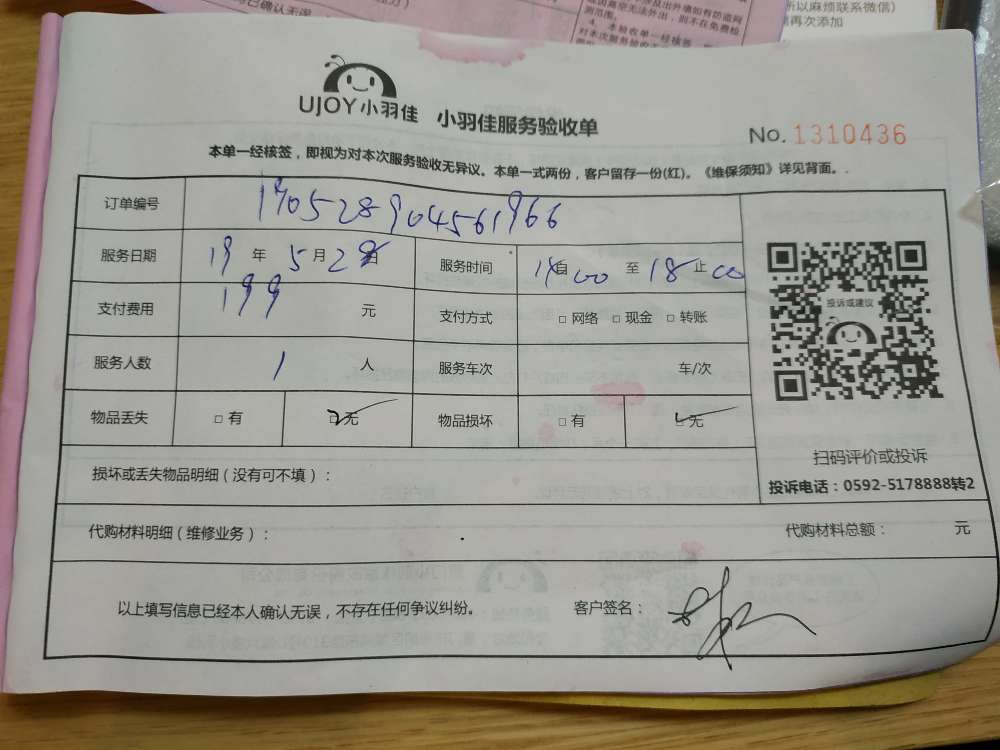 UJOY小羽佳 小羽佳服务验收单
No. 1310436
本单一经核签，即视为对本次服务验收无异议。本单一式两份，客户留存一份(红)。《维保须知》详见背面。
订单编号 190528904561966
服务日期 19 年 5 月 28 日 服务时间 14 自 00 至 18 止 00
支付费用 199 元 支付方式 □ 网络 □ 现金 □ 转账
服务人数 1 人 服务车次 车/次
物品丢失 □ 有 □ 无 物品损坏 □ 有 □ 无
损坏或丢失物品明细（没有可不填）：
代购材料明细（维修业务）： 代购材料总额： 元
以上填写信息已经本人确认无误，不存在任何争议纠纷。 客户签名：
投诉或建议
扫码评价或投诉
投诉电话：0592-5178888转2
所以麻烦联系微信）
再次添加
4、本验收单一经核签